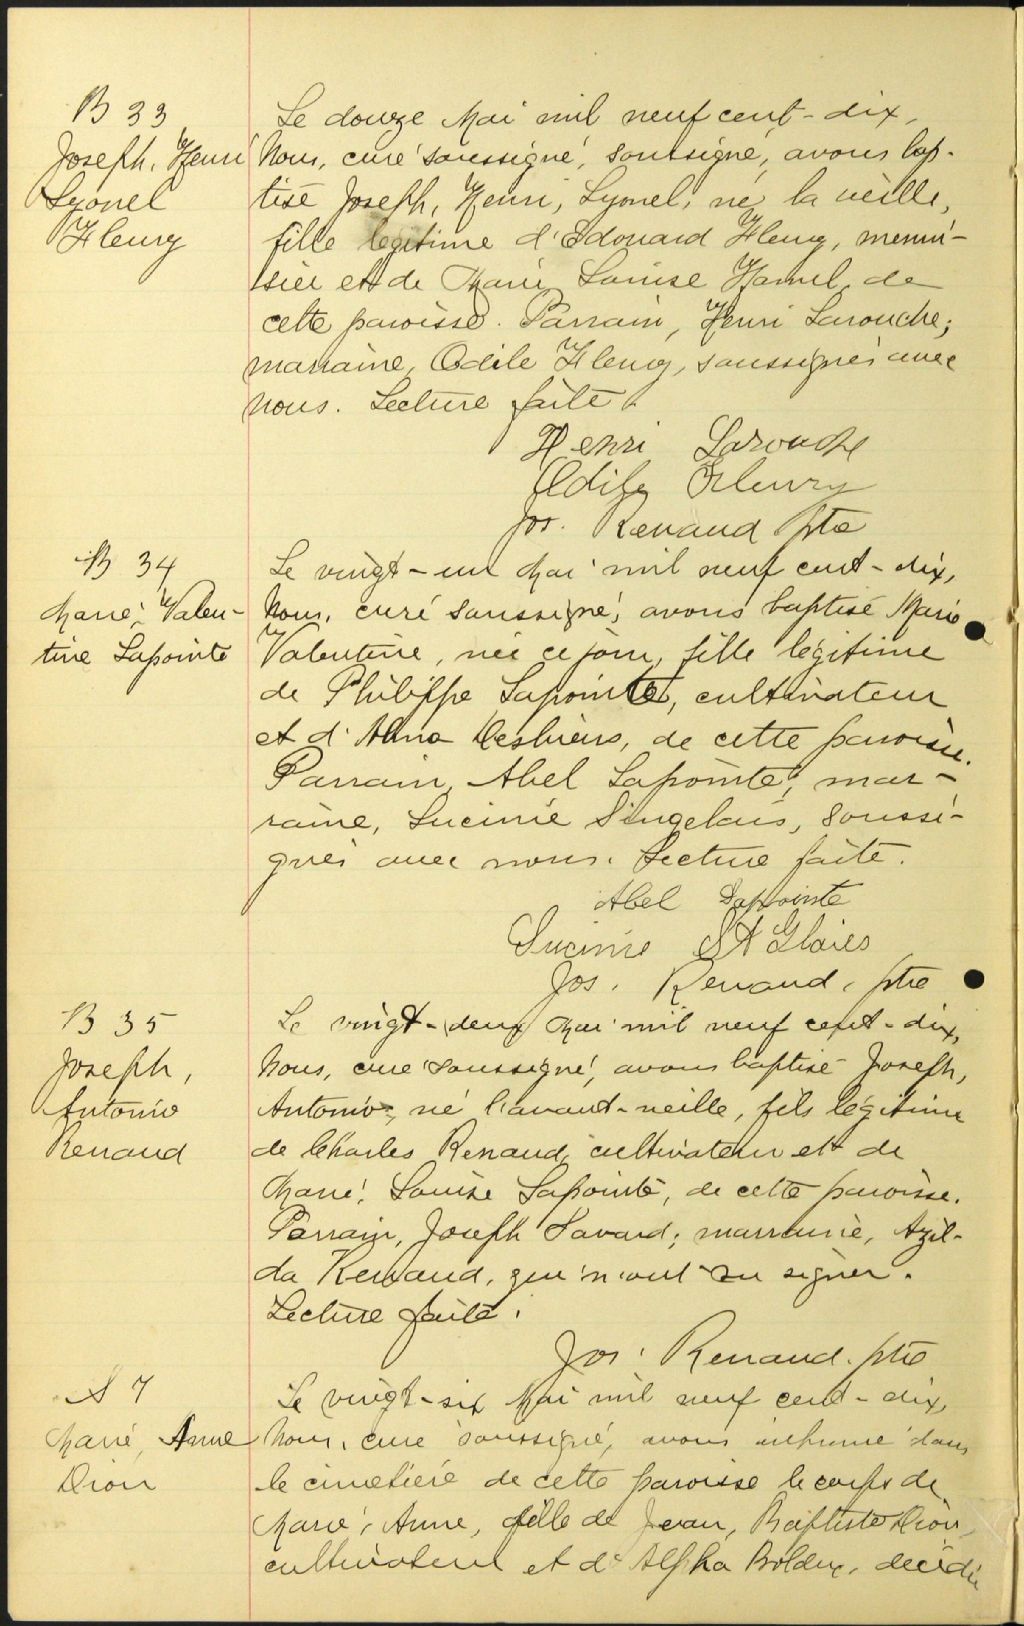 B 33
Joseph, Henri
Lyonel
Fleury
Le douze Mai mil neuf cent-dix,
Nous, curé soussigné, soussigné, avons bap-
tisé Joseph, Henri, Lyonel, né la veille,
fille légitime d'Edouard Fleury, menui-
sier et de Marie Louise Hamel, de
cette paroisse. Parrain, Henri Larouche;
marraine, Odile Fleury, soussignés avec
nous. Lecture faite.
Henri Larouche
Odile Fleury
Jos. Renaud ptre
B 34
Marie, Valen-
tine Lapointe
Le vingt-un Mai mil neuf cent-dix,
Nous, curé soussigné, avons baptisé Marie
Valentine, née ce jour, fille légitime
de Philippe Lapointe, cultivateur
et d'Alma Desbiens, de cette paroisse.
Parrain, Abel Lapointe, mar-
raine, Lucinie Singelais, soussi-
gnés avec nous. Lecture faite.
Abel Lapointe
Lucinie St Glais
Jos. Renaud, ptre
B 35
Joseph,
Antonio
Renaud
Le vingt-deux Mai mil neuf cent-dix,
Nous, curé soussigné, avons baptisé Joseph,
Antonio, né l'avant-veille, fils légitime
de Charles Renaud, cultivateur et de
Marie, Louise Lapointe, de cette paroisse.
Parrain, Joseph Savard; marraine, Azil-
da Renaud, qui n'ont su signer.
Lecture faite.
Jos. Renaud. ptre
S 7
Marie, Anne
Dion
Le vingt-six Mai mil neuf cent-dix,
Nous, curé soussigné, avons inhumé dans
le cimetière de cette paroisse le corps de
Marie, Anne, fille de Jean, Baptiste Dion,
cultivateur et d'Alpha Bolduc, décédée